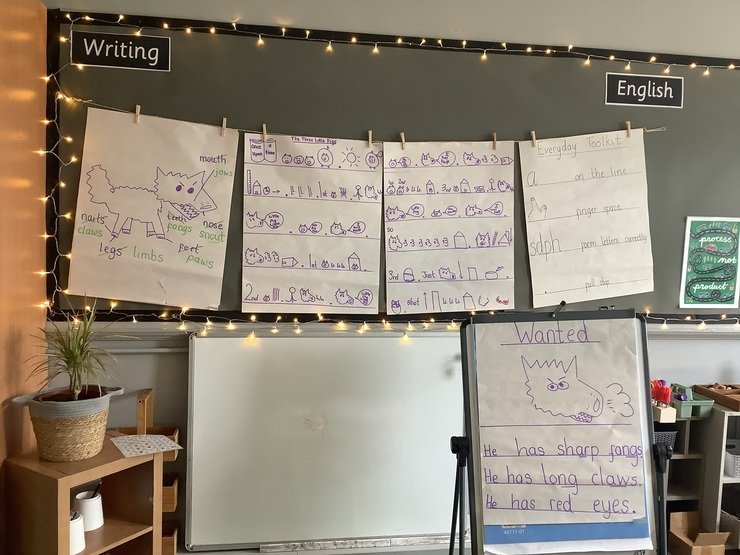 Writing
English
mouth
jaws
nails
claws
teeth
fangs
nose
snout
legs
limbs
feet
paws
The Three Little Pigs
Once
upon
a
time
1st
Little
pig
2nd
so
3rd
Just
shot
Everyday Toolkit
a on the line
finger space
sdph form letters correctly
. full stop
process
not
product
Wanted
He has sharp fangs.
He has long claws.
He has red eyes.